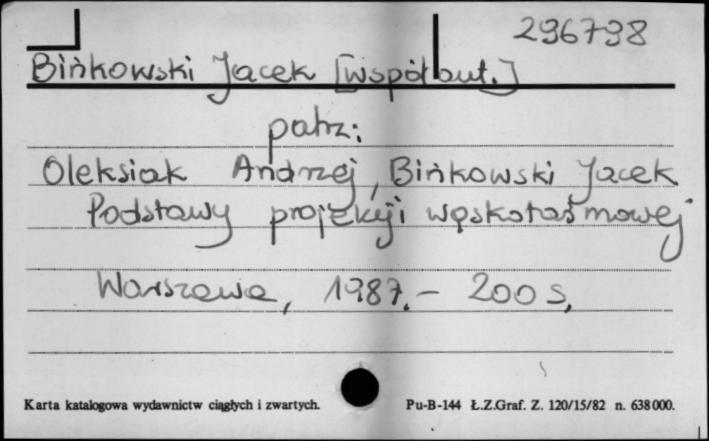 296798
Bińkowski Jacek [współaut.]
patrz:
Oleksiak Andrzej, Bińkowski Jacek
Podstawy projekcji wąskotaśmowej
Warszawa, 1987. – 200 s.
Karta katalogowa wydawnictw ciągłych i zwartych. Pu-B-144 Ł.Z.Graf. Z. 120/15/82 n. 638000.